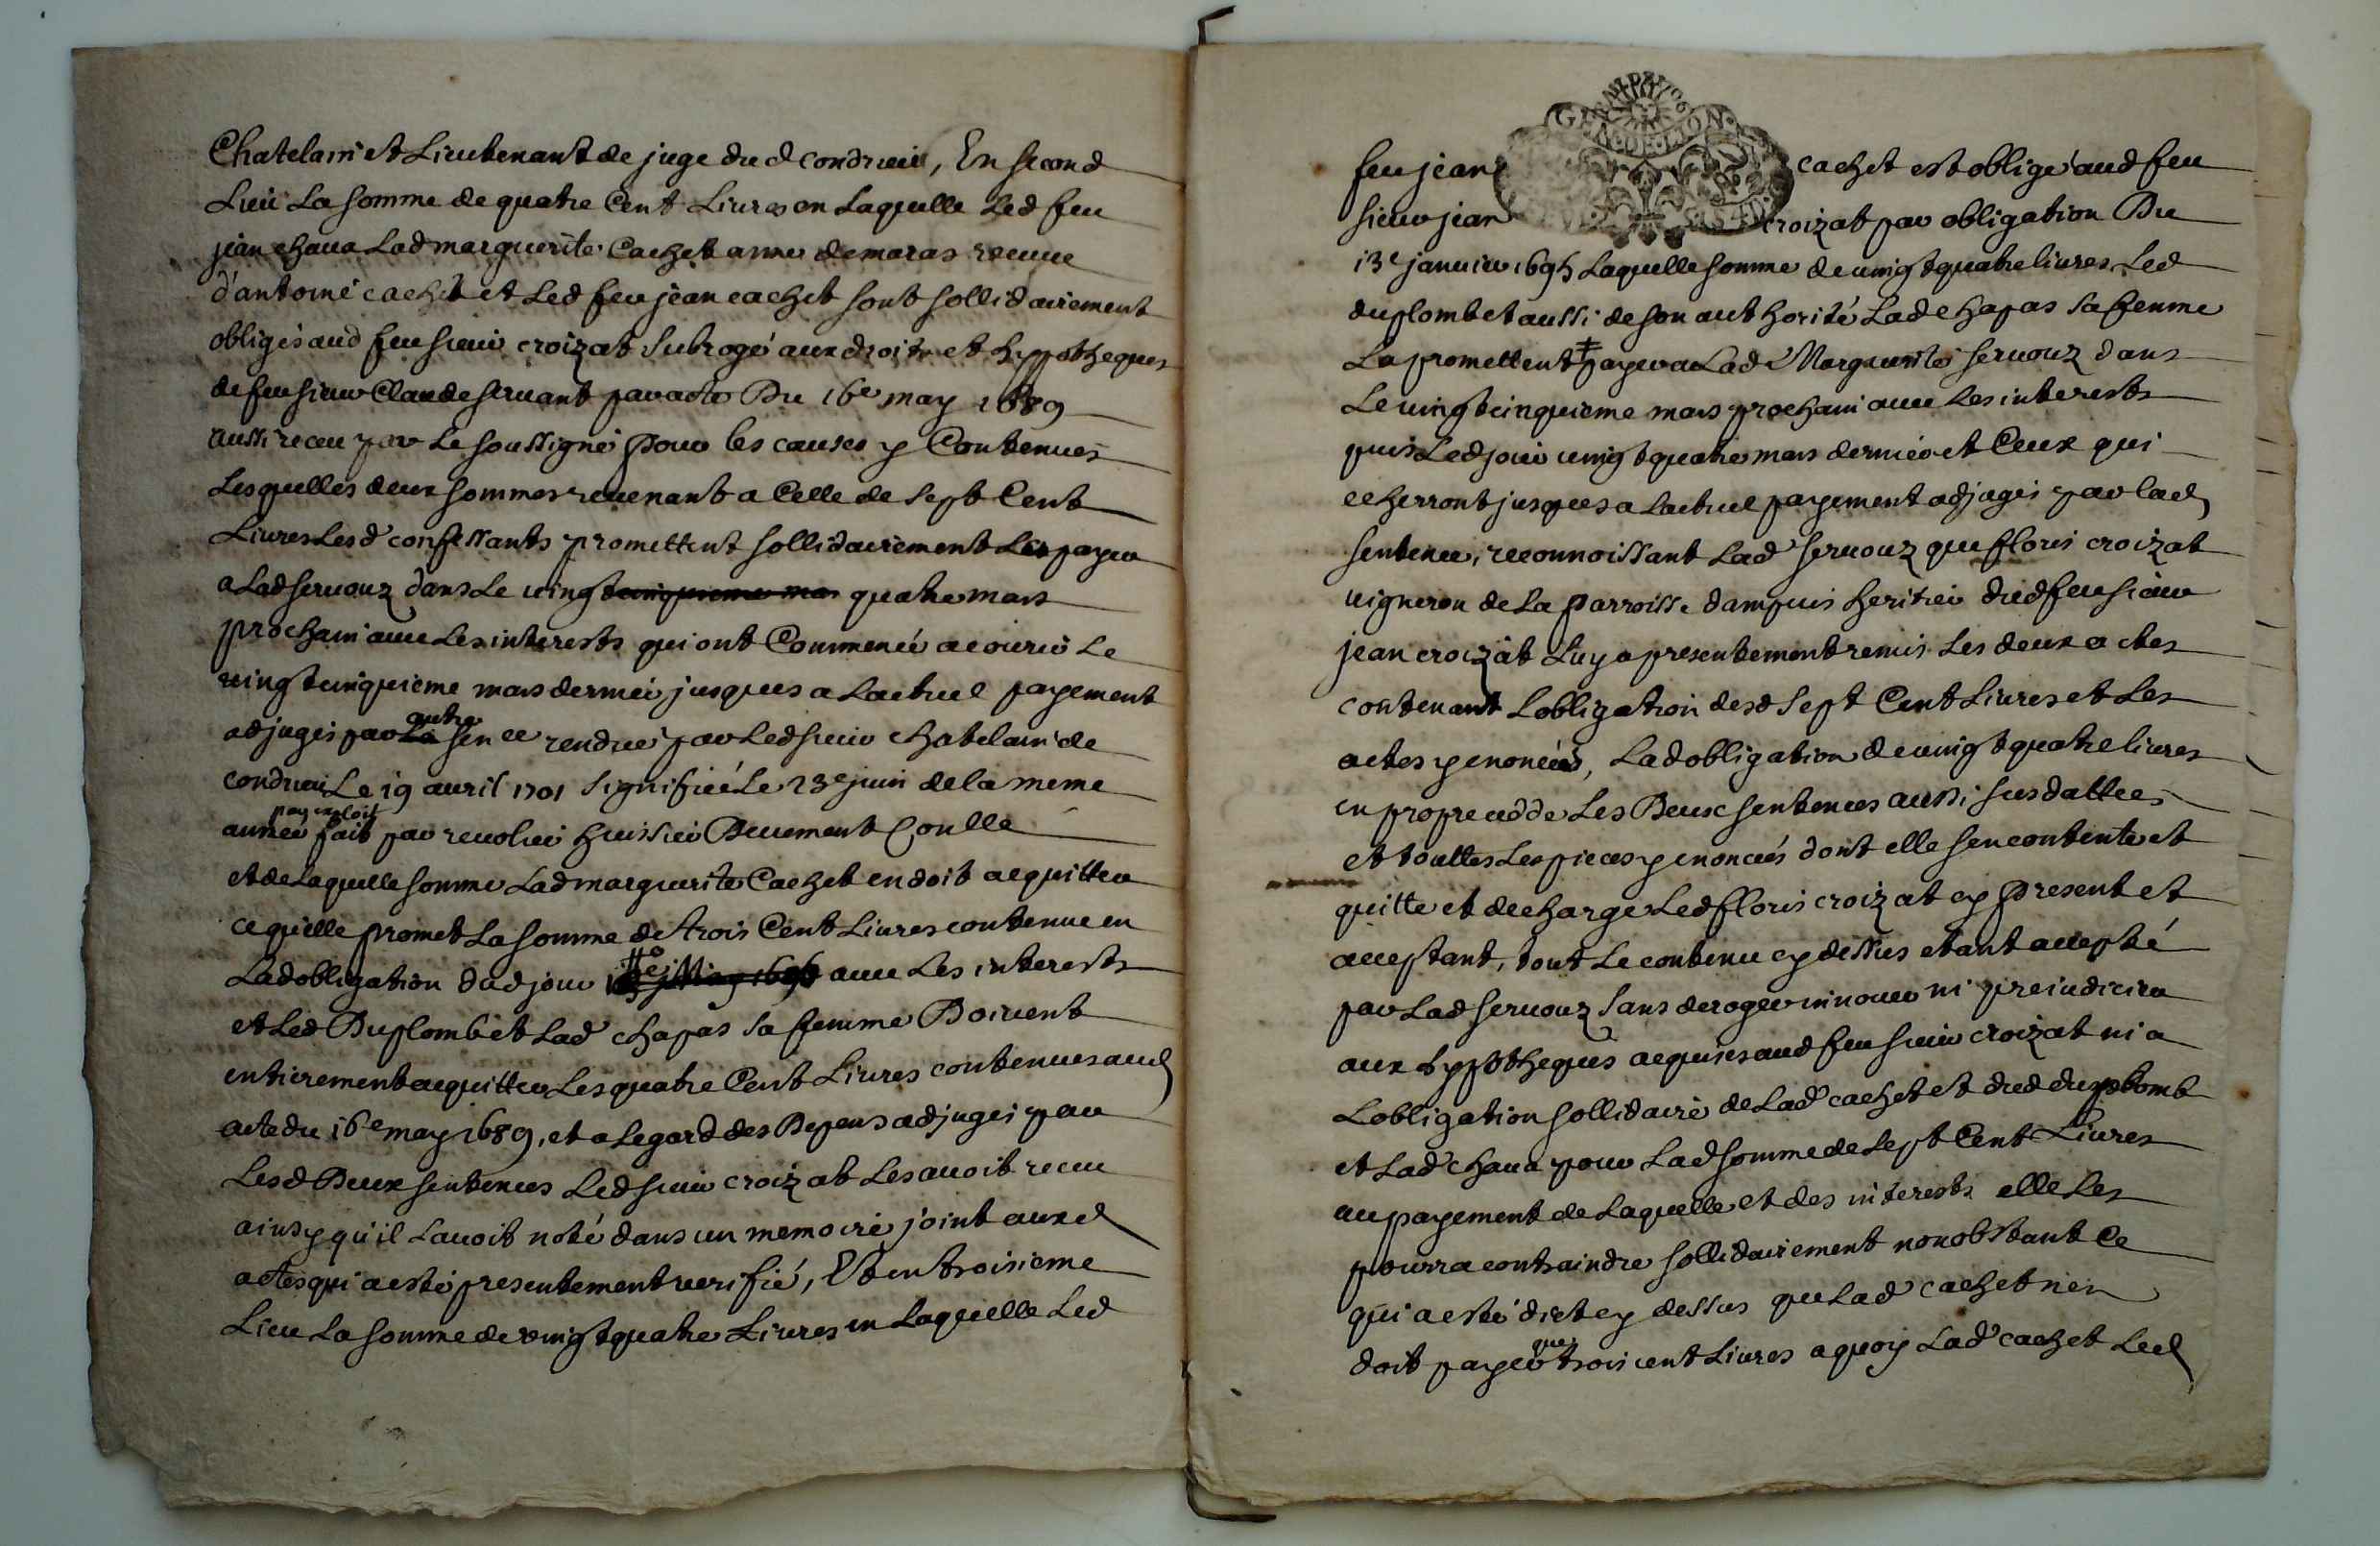 Chatelain et Lieutenant de juge dud condrieu, En second
Lieu La somme de quatre Cent Livres en Laquelle Led feu
jean chava Lad marguerite Cachet anne demaras veuve
d'antoine cachet et Led feu jean cachet sont sollidairement
obligés aud feu sieur croizat subrogé aux droits et hypotheques
de feu sieur Claude servant par acte Du 16e may 1689
aussi receu par Le soussigné pour les causes y Contenues
Lesquelles deux sommes revenant a Celle de sept Cent
Livres Lesd confessants promettent sollidairement Les payer
a Lad servouz dans Le vingt cinquieme mars quatre mars
prochain avec Les interests qui ont Commencé a courir Le
vingt cinquieme mars dernier jusques a Lactuel payement
adjugés par La autre sen ce rendue par Led sieur chatelain de
condrieu Le 19 avril 1701 signifiée Le 23e juin de la meme
année par exploit fait par revolier huissier Deuement Conllé
et de Laquelle somme Lad marguerite Cachet en doit acquitter
ce qu'elle promet La somme de trois Cent Livres contenue en
Lad obligation dud jour avec Les interests
et Led Duplomb et Lad chapas sa femme Doivent
entierement acquitter Les quatre Cent Livres contenues aud
acte du 16e may 1689, et a Legard des Depens adjugés par
Lesd Deux sentences Led sieur croizat Les avoit receu
ainsy qu'il Lavoit noté dans un memoire joint auxd
actes qui a esté presentement verifié, Et en troisieme
Lieu La somme de vingt quatre Livres en Laquelle Led
GEN DE LION
feu jean cachet est obligé aud feu
sieur jean croizat par obligation Du
13e janvier 1695 Laquelle somme de vingt quatre livres Led
duplomb et aussi de son authorité Lad chapas sa femme
La promettent ‡ payer a Lad Marguerite servouz dans
Le vingt cinquieme mars prochain avec Les interests
puis Led jour vingt quatre mars dernier et Ceux qui
echerront jusques a Lactuel payement adjugés par lad
sentence, reconnoissant Lad servouz que floris croizat
vigneron de La parroisse dampuis heritier dud feu sieur
jean croizat Luy a presentement remis Les deux actes
contenant Lobligation desd sept Cent Livres et Les
actes y enoncés, Lad obligation de vingt quatre livres
en propre Les Deux sentences aussi susdattées
et touttes Les pieces y enoncées dont elle sen contente et
quitte et decharge Led floris croizat cy present et
acceptant, tout Le contenu cy dessus etant accepté
par Lad servouz sans deroger innover ni prejudicier
aux hypotheques acquises aud feu sieur croizat ni a
Lobligation sollidaire de Lad cachet et dud duplomb
et Lad chava pour Lad somme de sept Cent Livres
au payement de Laquelle et des interests elle Les
pourra contraindre sollidairement nonobstant Ce
qui a esté dict cy dessus que Lad cachet n'en
doit payer que trois cent Livres a quoy Lad cachet Led